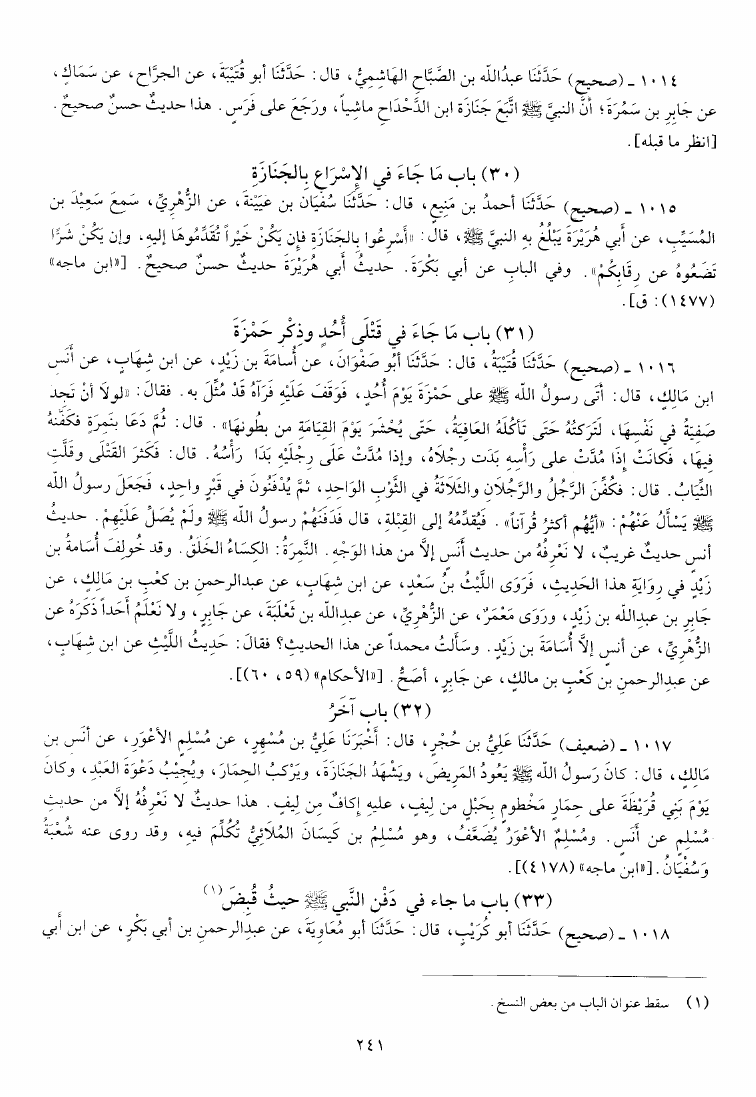 ١٠١٤ ـ (صحيح) حَدَّثَنَا عبدُالله بن الصَّبَّاح الهَاشِمِيُّ، قال: حَدَّثَنَا أبو قُتَيْبَةَ، عن الجرَّاح، عن سَمَاكٍ،
عن جَابِرِ بن سَمُرَةَ؛ أنَّ النبيَّ ﷺ اتَّبَعَ جَنَازَة ابن الدَّحْدَاحِ ماشِياً، ورَجَعَ على فَرَسٍ. هذا حديثٌ حسنٌ صحيحٌ.
[انظر ما قبله].
(٣٠) باب مَا جَاءَ في الإسْرَاعِ بِالجَنَازَةِ
١٠١٥ ـ (صحيح) حَدَّثَنَا أحمدُ بن مَنِيعٍ، قال: حَدَّثَنَا سُفْيَان بن عُيَيْنَةَ، عن الزُّهْرِيِّ، سَمِعَ سَعِيْدَ بن
المُسَيِّبِ، عن أبي هُرَيْرَةَ يَبْلُغُ بِهِ النبيَّ ﷺ، قال: «أَسْرِعُوا بِالجَنَازَةِ فإن يَكُنْ خَيْراً تُقَدِّمُوهَا إليهِ، وإن يَكُنْ شَرًّا
تَضَعُوهُ عن رِقَابِكُمْ». وفي البابِ عن أبي بَكْرَةَ. حديثُ أبي هُرَيْرَةَ حديثٌ حسنٌ صحيحٌ. [«ابن ماجه»
(١٤٧٧): ق].
(٣١) باب مَا جَاءَ في قَتْلَى أُحُدٍ وذِكْرِ حَمْزَةَ
١٠١٦ ـ (صحيح) حَدَّثَنَا قُتَيْبَةُ، قال: حَدَّثَنَا أبُو صَفْوَانَ، عن أُسامَةَ بن زَيْدٍ، عن ابن شِهَابٍ، عن أنَس
ابن مَالِكٍ، قال: أتَى رسولُ الله ﷺ على حَمْزَةَ يَوْمَ أُحُدٍ، فَوَقَفَ عَلَيْهِ فَرَآهُ قَدْ مُثِّلَ به. فقالَ: «لولا أنْ تَجِد
صَفِيَّةُ في نَفْسِهَا، لَتَرَكْتُهُ حَتَّى تأكُلَهُ العَافِيَةُ، حَتَّى يُحْشَرَ يَوْمَ القِيَامَةِ من بطُونِهَا». قال: ثُمَّ دَعَا بنَمِرَةٍ فكَفَّنَهُ
فِيهَا، فَكانَتْ إذَا مُدَّتْ على رَأسِهِ بَدَت رجْلاَهُ، وإذا مُدَّتْ عَلَى رِجْلَيْهِ بَدَا رَأْسُهُ. قال: فَكَثُرَ القَتْلَى وقَلَّتِ
الثِّيَابُ. قال: فكُفِّنَ الرَّجُلُ والرَّجُلاَنِ والثَّلاَثَةُ في الثَّوْبِ الوَاحِدِ، ثمَّ يُدْفَنُونَ في قَبْرٍ واحِدٍ، فَجَعَلَ رسولُ الله
ﷺ يَسْأَلُ عَنْهُمْ: «أيُّهم أكثرُ قُرآناً». فَيُقدِّمُهُ إلى القِبْلةِ، قال فَدَفَنَهُمْ رسولُ الله ﷺ ولَمْ يُصَلِّ عَلَيْهِمْ. حديثُ
أنسٍ حديثٌ غريبٌ، لا نَعْرِفُهُ من حديث أنَسٍ إلاَّ من هذا الوَجْهِ. النَّمِرَةُ: الكِسَاءُ الخَلَقُ. وقد خُولِفَ أُسَامةُ بن
زَيْدٍ في رِوَايَةِ هذا الحَدِيثِ، فَرَوَى اللَّيْثُ بنُ سَعْدٍ، عن ابن شِهَابٍ، عن عبدالرحمنِ بن كَعْبِ بن مَالِكٍ، عن
جَابرِ بن عبدِالله بن زَيْدٍ، ورَوَى مَعْمَرٌ، عن الزُّهْرِيِّ، عن عبدِالله بن ثَعْلَبَةَ، عن جَابرٍ، ولا نَعْلَمُ أحَداً ذَكَرَهُ عن
الزُّهْرِيِّ، عن أنسٍ إلاَّ أُسَامَةَ بن زَيْدٍ. وسَألتُ محمداً عن هذا الحديثِ؟ فقالَ: حَدِيثُ اللَّيْثِ عن ابن شِهَابٍ،
عن عبدِالرحمنِ بن كَعْبِ بن مالكٍ، عن جَابِرٍ، أصَحُّ. [«الأحكام» (٥٩، ٦٠)].
(٣٢) باب آخَرُ
١٠١٧ ـ (ضعيف) حَدَّثَنَا عَلِيُّ بن حُجْرٍ، قال: أَخْبَرَنَا عَلِيُّ بن مُسْهِرٍ، عن مُسْلِمٍ الأعْوَرِ، عن أنَسِ بن
مَالِكٍ، قال: كانَ رَسولُ الله ﷺ يَعُودُ المَرِيضَ، ويَشْهَدُ الجَنَازَةَ، ويَرْكَبُ الحِمَارَ، ويُجِيْبُ دَعْوَةَ العَبْدِ، وكانَ
يَوْمَ بَنِي قُرَيْظَةَ على حِمَارٍ مَخْطُومٍ بِحَبْلٍ من لِيفٍ، عليهِ إكافٌ مِن لِيفٍ. هذا حديثٌ لا نَعْرِفُهُ إلاَّ من حديثِ
مُسْلِمٍ عن أنَسٍ. ومُسْلِمٌ الأعْوَرُ يُضَعَّفُ، وهو مُسْلِمُ بن كَيسَانَ المُلاَئِيُّ تُكُلِّمَ فيهِ، وقد روى عنه شُعْبَةُ
وَسُفْيَانُ. [«ابن ماجه» (٤١٧٨)].
(٣٣) باب ما جاء في دَفْنِ النَّبي ﷺ حيثُ قُبِضَ(١)
١٠١٨ ـ (صحيح) حَدَّثَنَا أبو كُرَيْبٍ، قال: حَدَّثَنَا أبو مُعَاوِيَةَ، عن عبدِالرحمنِ بن أبي بَكْرٍ، عن ابن أبي
(١) سقط عنوان الباب من بعض النسخ.
٢٤١